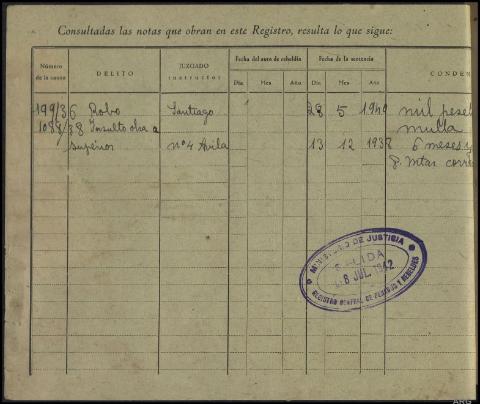 Consultadas las notas que obran en este Registro, resulta lo que sigue:
Número de la causa
DELITO
JUZGADO instructor
Fecha del auto de rebeldía
Día Mes Año
Fecha de la sentencia
Día Mes Año
CONDEN
199/36 Robo Santiago 28 5 1940 mil peset
1089/38 Insulto obra a multa
superior nº 4 Avila 13 12 1938 6 meses y
P. mtar corre
MINISTERIO DE JUSTICIA
SALIDA
8 JUL. 1942
REGISTRO CENTRAL DE PENADOS Y REBELDES
ARG